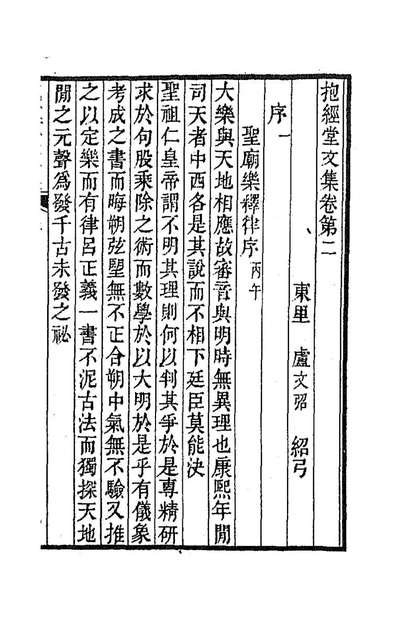 抱經堂文集卷第二
東里 盧文弨 紹弓
序一
聖廟樂釋律序 丙午
大樂與天地相應故審音與明時無異理也康熙年閒
司天者中西各是其說而不相下廷臣莫能決
聖祖仁皇帝謂不明其理則何以判其爭於是專精研
求於句股乘除之術而數學於以大明於是乎有儀象
考成之書而晦朔弦望無不正合朔中氣無不驗又推
之以定樂而有律呂正義一書不泥古法而獨探天地
閒之元聲爲發千古未發之祕